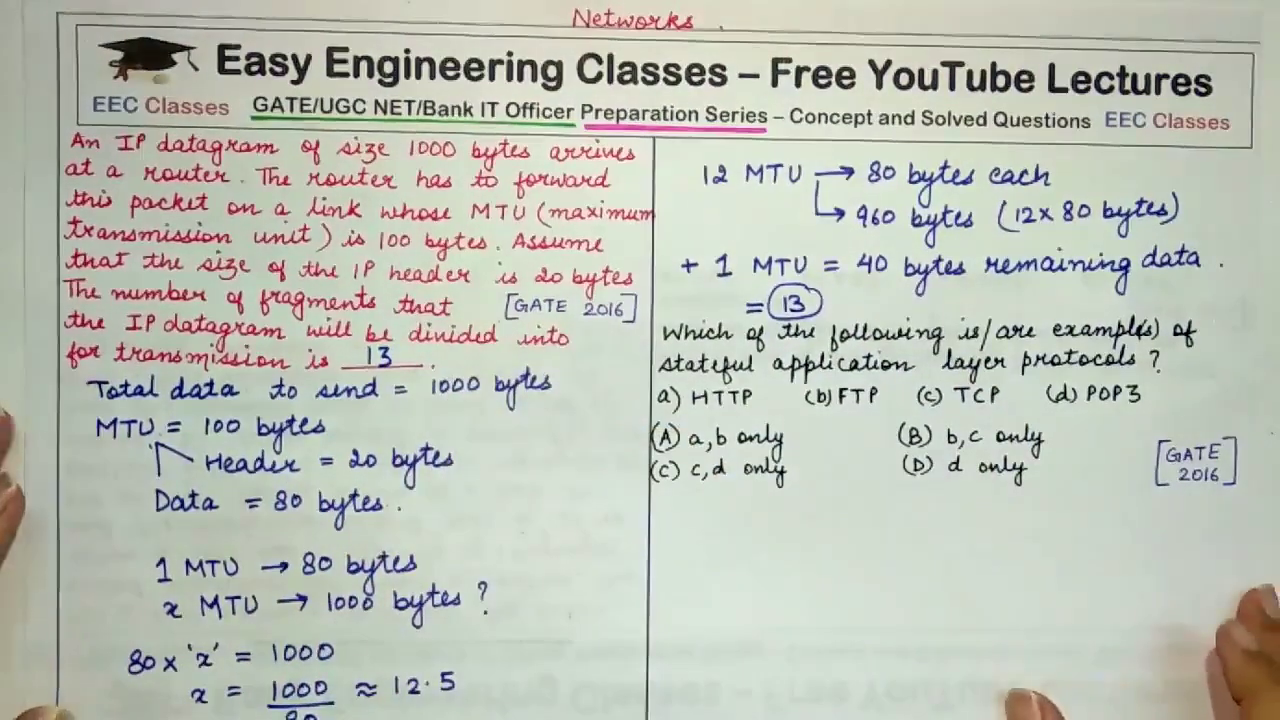 Networks.
Easy Engineering Classes – Free YouTube Lectures
EEC Classes GATE/UGC NET/Bank IT Officer Preparation Series – Concept and Solved Questions EEC Classes
An IP datagram of size 1000 bytes arrives
at a router. The router has to forward
this packet on a link whose MTU (maximum
transmission unit) is 100 bytes. Assume
that the size of the IP header is 20 bytes
The number of fragments that [GATE 2016]
the IP datagram will be divided into
for transmission is 13.
Total data to send = 1000 bytes
MTU = 100 bytes
Header = 20 bytes
Data = 80 bytes.
1 MTU → 80 bytes
x MTU → 1000 bytes?
80 x 'x' = 1000
x = 1000 ≈ 12.5
80
12 MTU → 80 bytes each
→ 960 bytes (12 x 80 bytes)
+ 1 MTU = 40 bytes remaining data.
= 13
Which of the following is/are example(s) of
stateful application layer protocols?
a) HTTP (b) FTP (c) TCP (d) POP3
(A) a, b only (B) b, c only
(C) c, d only (D) d only
[GATE
2016]